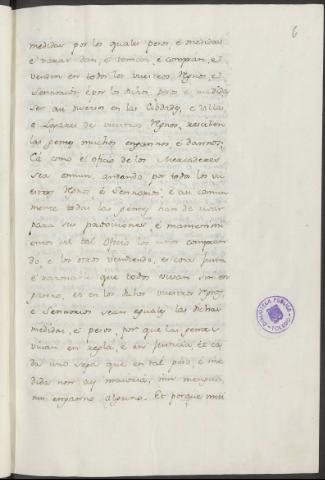 6
medidas por los quales pesos, é medidas
é varas dan, é toman, é compran, é
venden en todos los vuestros Reynos, é
Sennorios, é por los dichos pesos é medidas
ser diversos en las Cibdades, é Villas,
é Logares de vuestros Regnos, resciben
las gentes muchos engannos, é dannos:
Ca como el oficio de los Mercaderes
sea comun, andando por todos los vu
estros Regnos é Sennorios, é aun comun
mente todas las gentes han de usar
para sus provisiones é mantenimi
entos del tal Oficio los unos compran
do é los otros vendiendo, es cosa justa
é razonable que todos vivan sin en
ganno, é en los dichos vuestros Regnos,
é Sennorios sean eguales las dichas
medidas, é pesos, por que las gentes
vivan en regla, é en Justicia, é ca
da uno sepa que en tal peso, é me
dida non ay mayoria, nin mengua,
nin enganno alguno. Et porque mui
BIBLIOTECA PUBLICA
TOLEDO